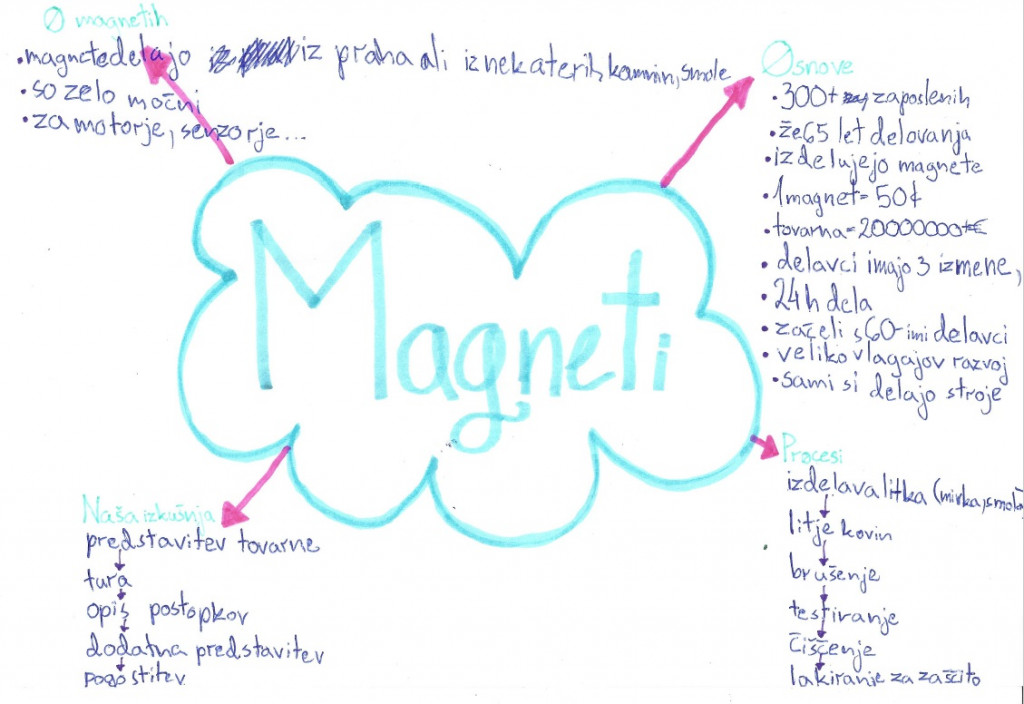 O magnetih
•magnete delajo iz praha ali iz nekaterih kamnin, smole
•so zelo močni
•za motorje, senzorje...
Osnove
•300+ zaposlenih
•že 65 let delovanja
•izdelujejo magnete
•1magnet=50¢
•tovarna=20000000+€
•delavci imajo 3 izmene,
•24h dela
•začeli s 60-imi delavci
•veliko vlagajo v razvoj
•sami si delajo stroje
Magneti
Naša izkušnja
predstavitev tovarne
tura
opis postopkov
dodatna predstavitev
pogostitev
Procesi
izdelava litka (mivka, smola)
litje kovin
brušenje
testiranje
čiščenje
lakiranje za zaščito